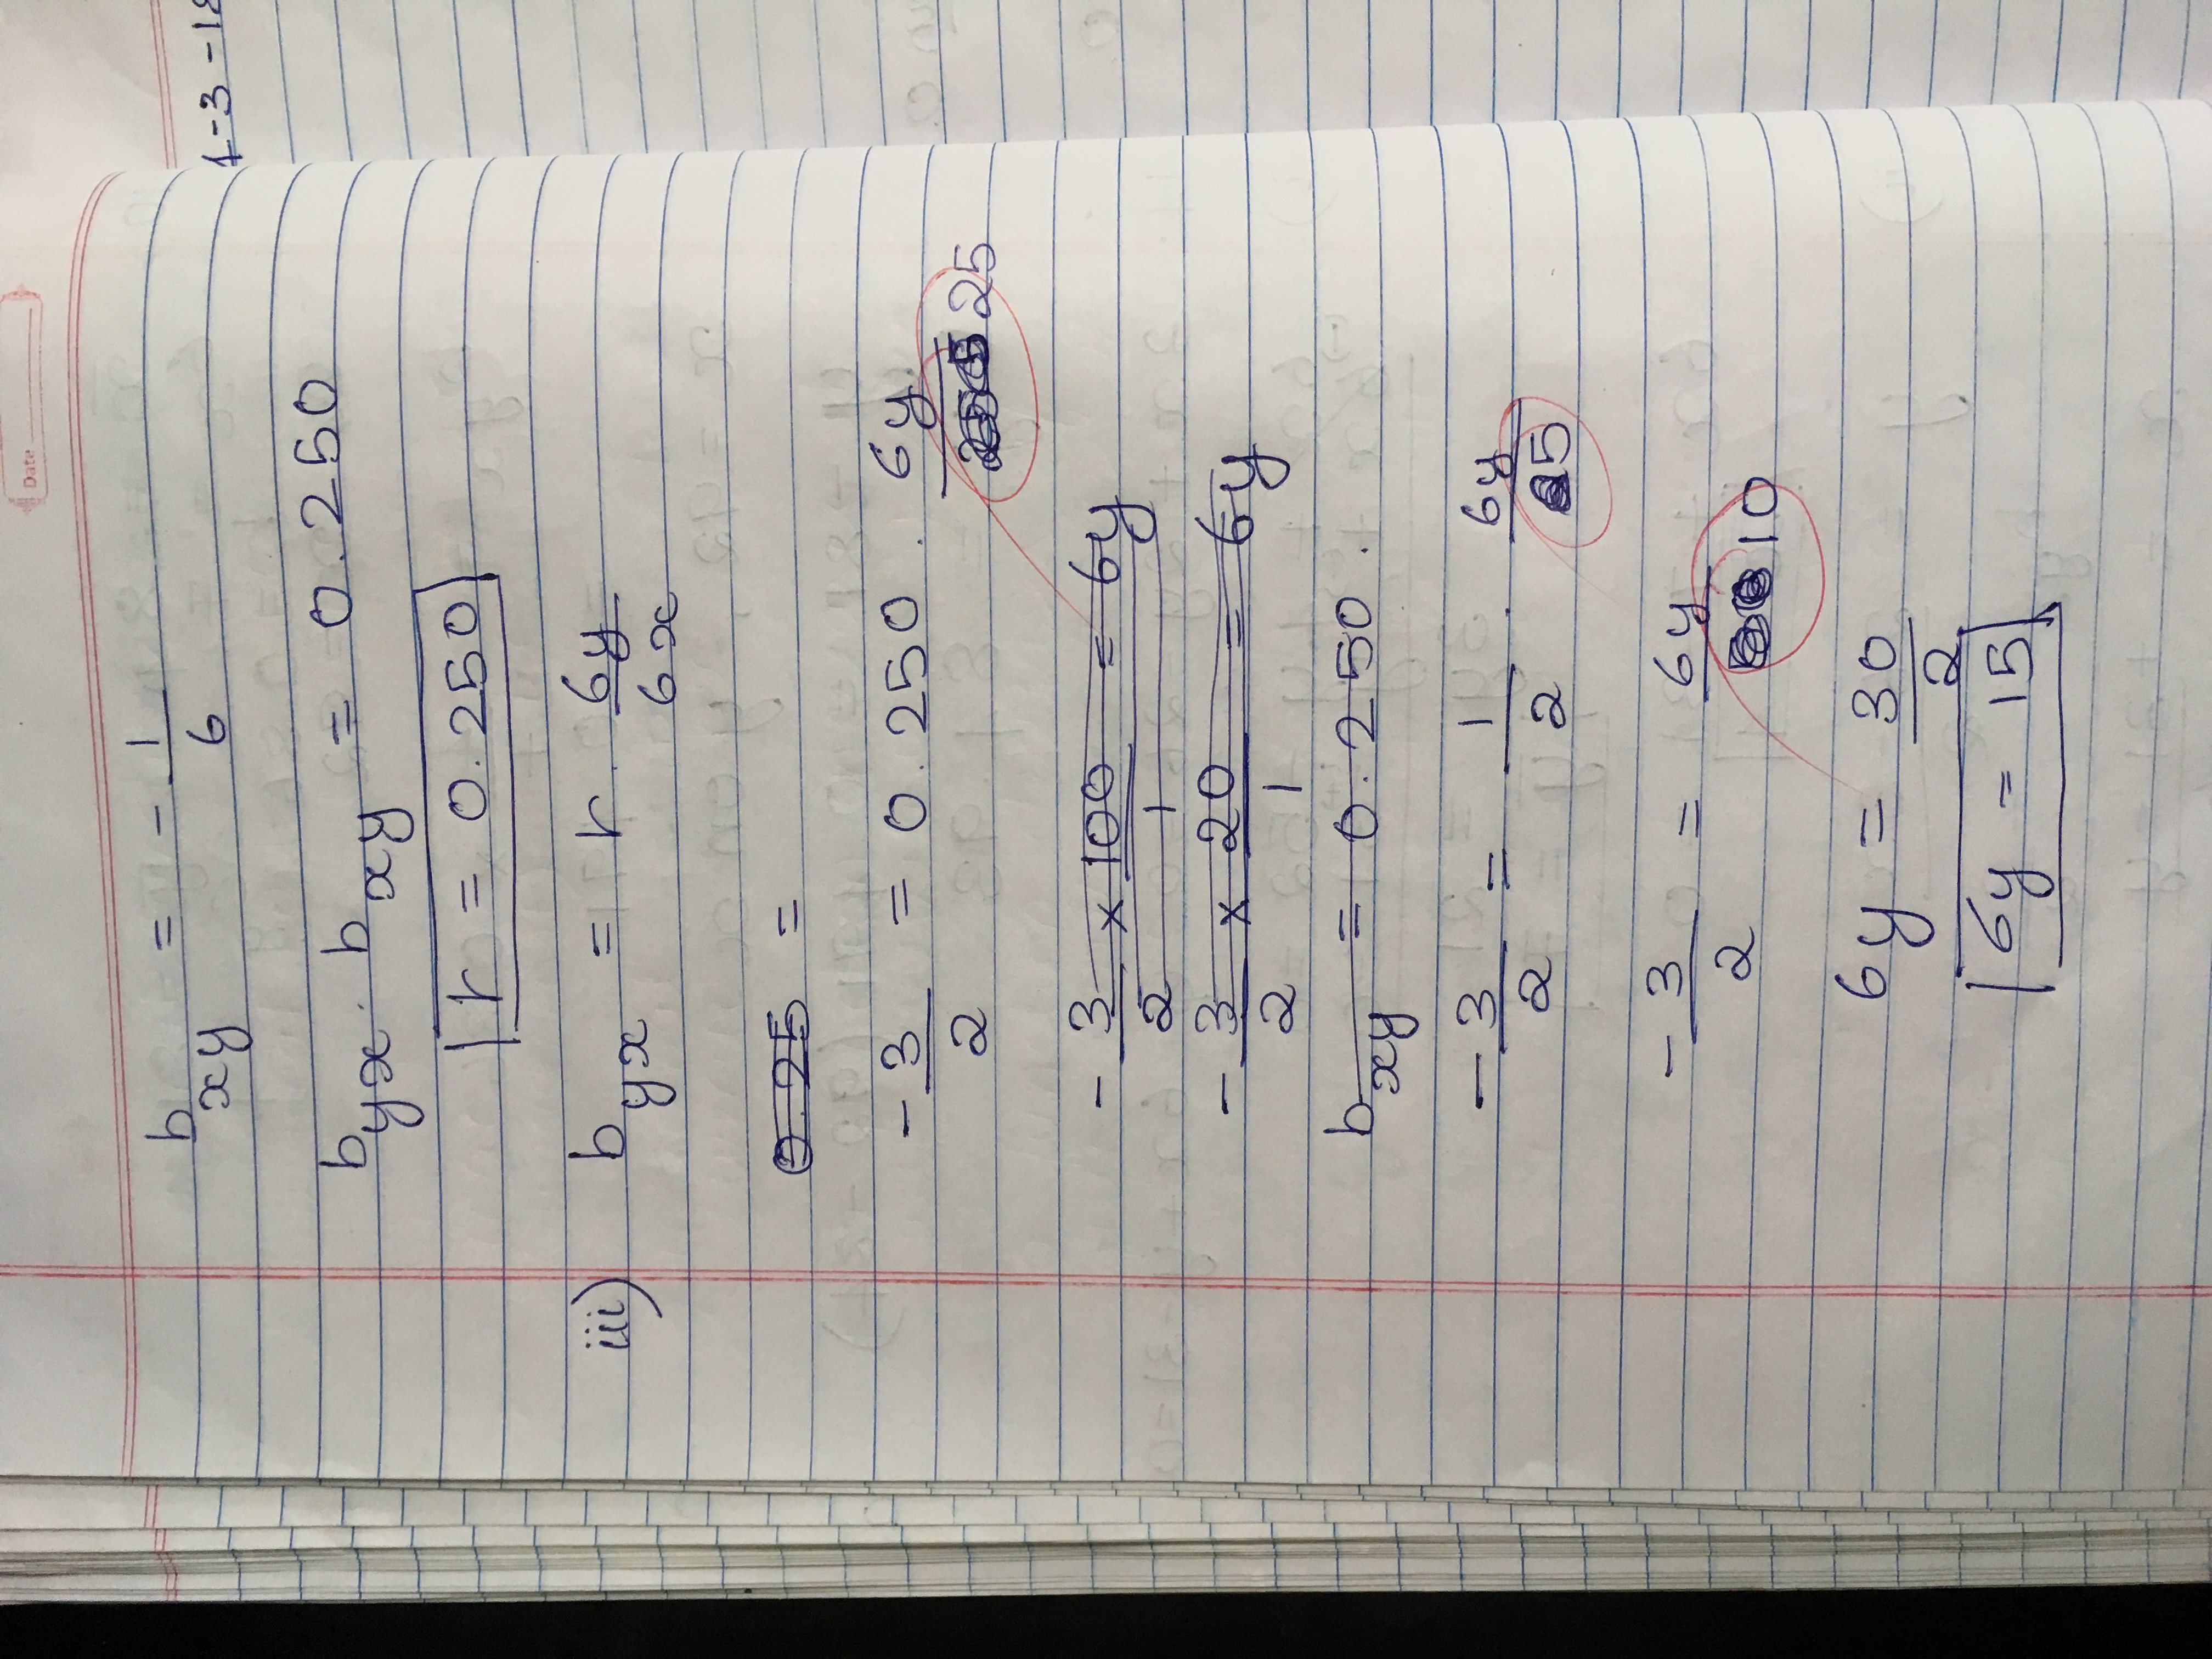 Date
b_xy = - 1/6
1-3-18
b_yx . b_xy = 0.250
r = 0.250
iii) b_yx = r . 6y/6x
0.25 =
- 3/2 = 0.250 . 6y/25
- 3/2 × 100/1 = 6y
- 3/2 × 20/1 = 6y
b_xy = 0.250 .
- 3/2 = 1/2 . 6y/5
- 3/2 = 6y/10
6y = 30/2
6y = 15